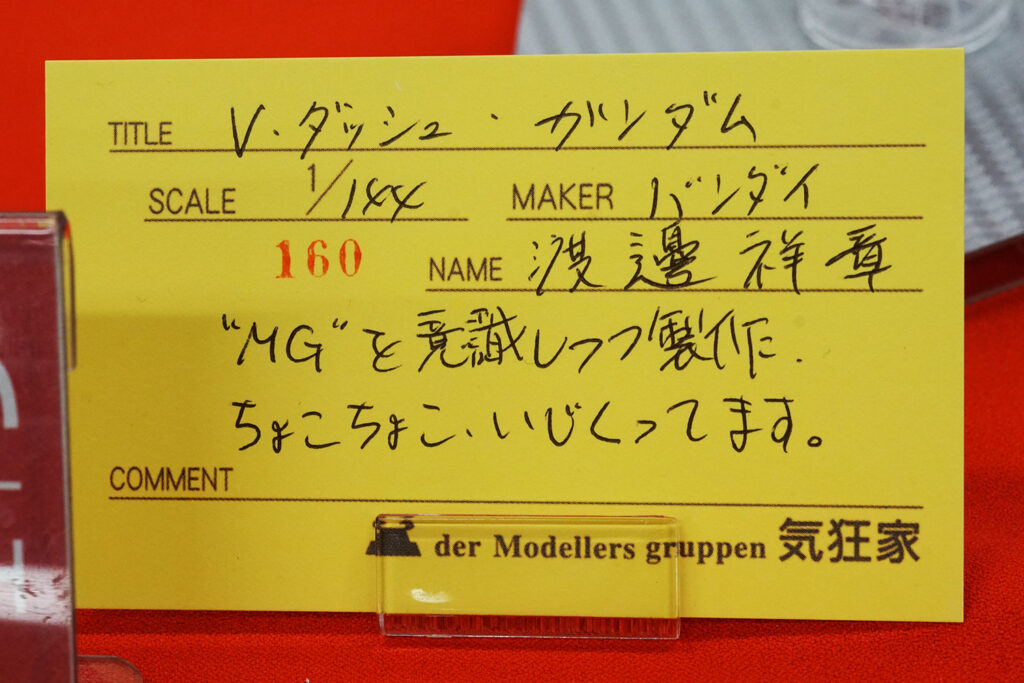 TITLE V・ダッシュ・ガンダム
SCALE 1/144 MAKER バンダイ
160 NAME 渡邊祥章
"MG"を意識しつつ製作に.
ちょこちょこ、いじくってます。
COMMENT
der Modellers gruppen 気狂家